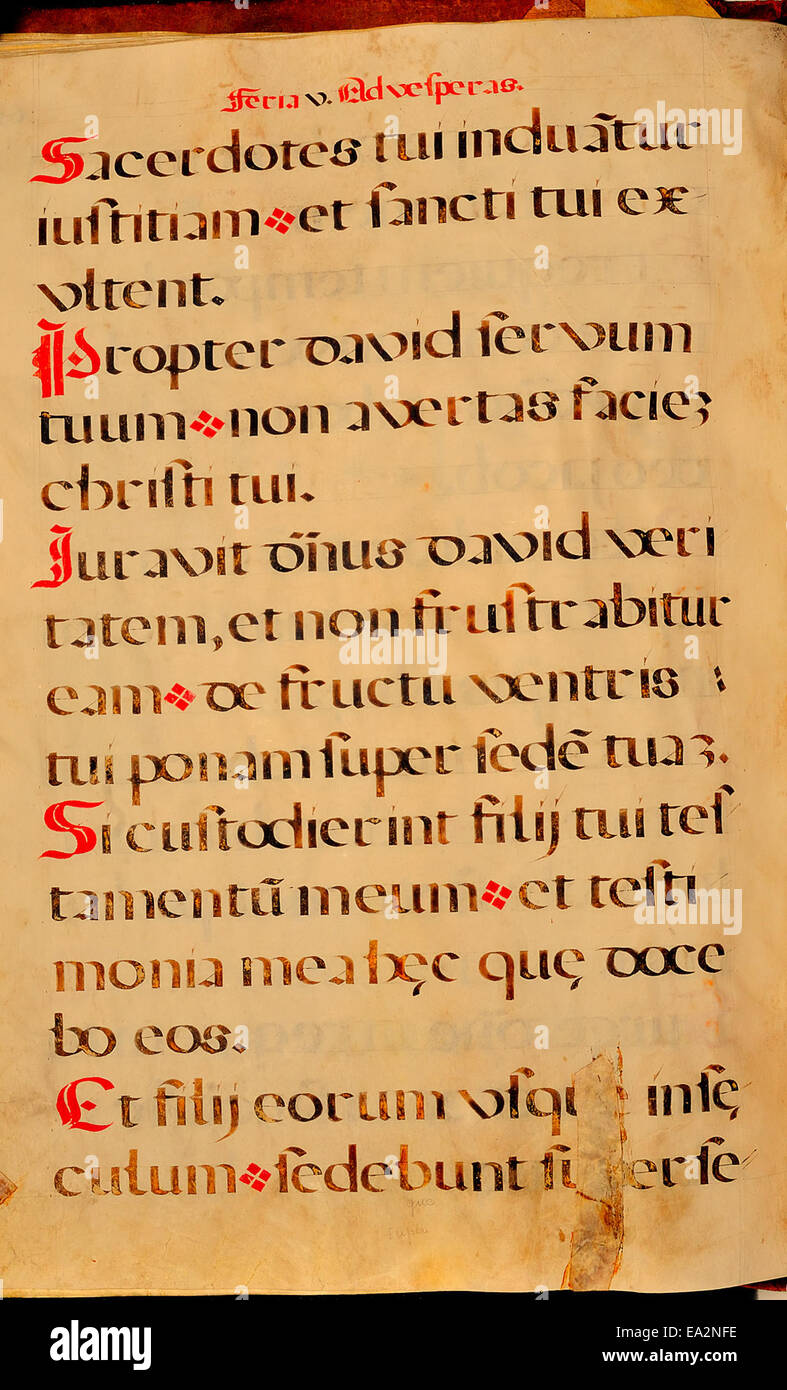 Feria v. Ad vesperas.
Sacerdotes tui induãtur
iuſtitiam et ſancti tui ex-
vltent.
Propter david ſervum
tuum non avertas facieʒ
chriſti tui.
Juravit dñus david veri
tatem, et non fruſtrabitur
eam de fructu ventris :
tui ponam ſuper ſedẽ tuaʒ.
Si cuſtodierint filij tui teſ-
tamentũ meum et teſti
monia mea hęc quę doce
bo eos.
Et filij eorum vſque inſę
culum ſedebunt ſuperſe-
que
super
alamy
EA2NFE
www.alamy.com